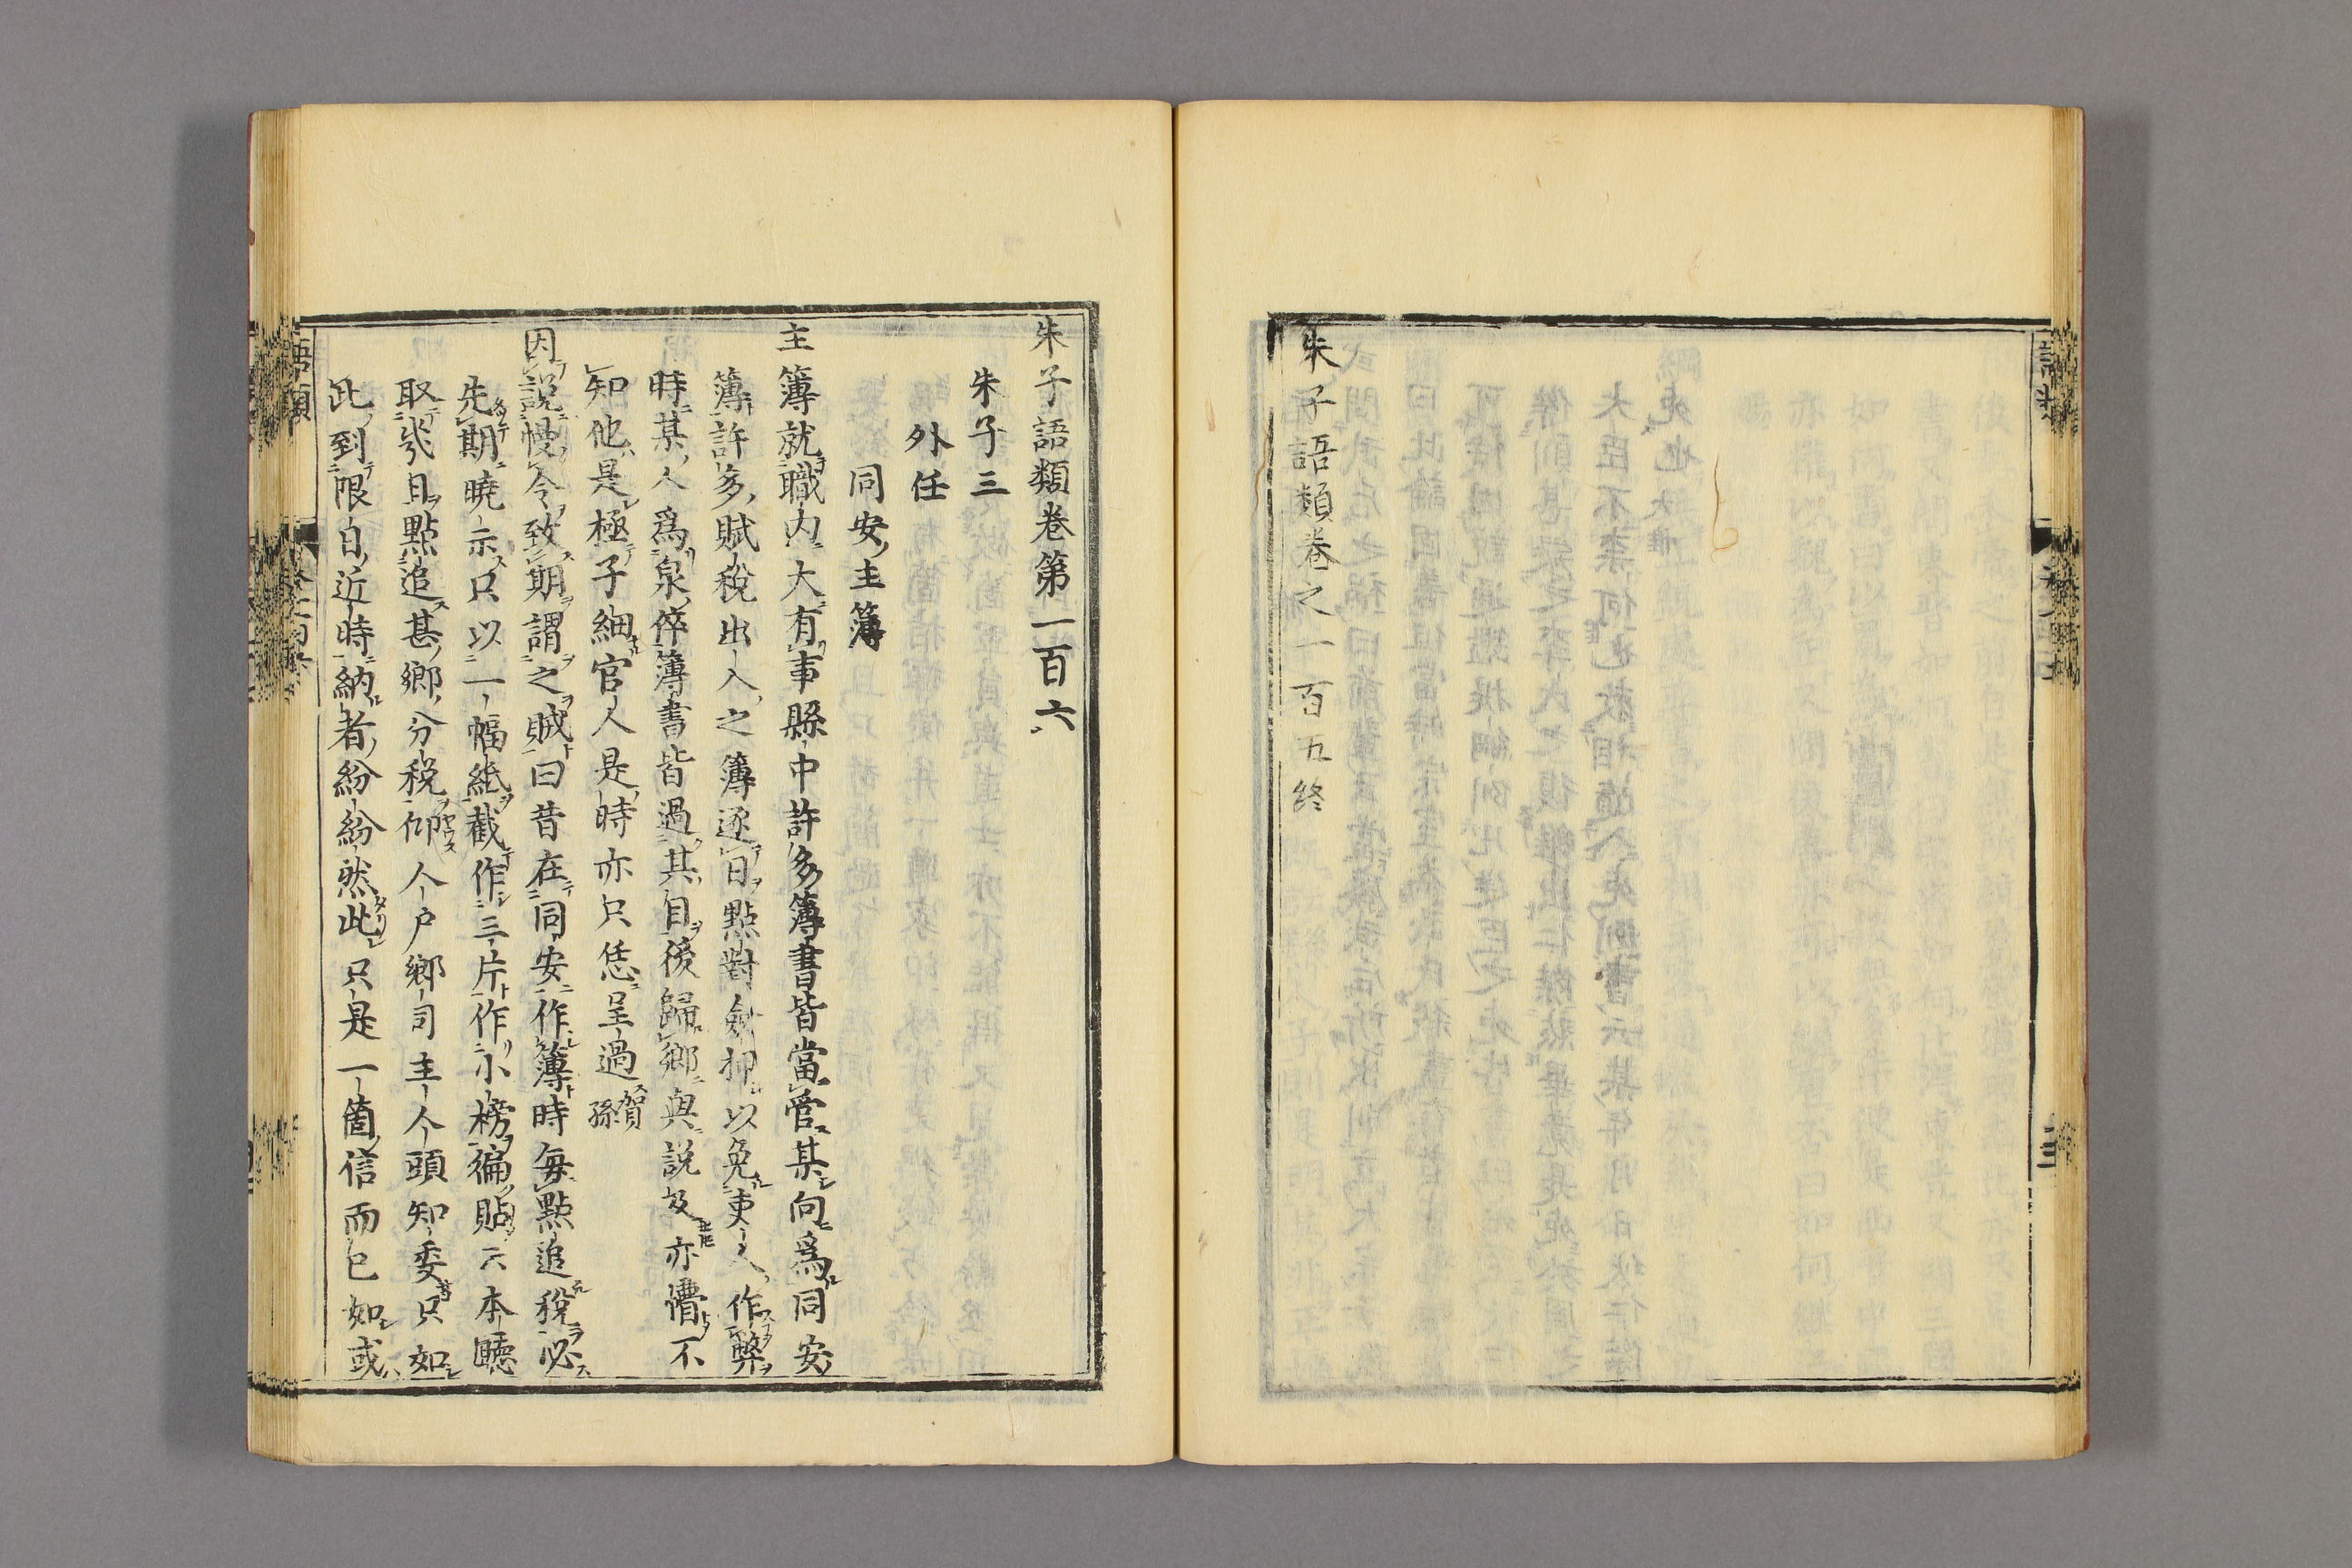 朱子語類卷之一百五終
朱子語類卷第一百六
朱子三
外任
同安主簿
主簿就職內大有事縣中許多簿書皆當管某向爲同安
簿許多賦稅出入之簿逐日點對僉押以免吏人作弊
時某人爲泉倅簿書皆過其目後歸鄉與說及亦懵不
知他是極子細官人是時亦只恁呈過賀孫
因說慢令致期謂之賊曰昔在同安作簿時每點追稅必
先期曉示只以一幅紙截作三片作小榜徧貼云本廳
取幾日點追甚鄉分稅仰人戶鄉司主人頭知委只如
此到限日近時納者紛紛然此只是一箇信而已如或
語類